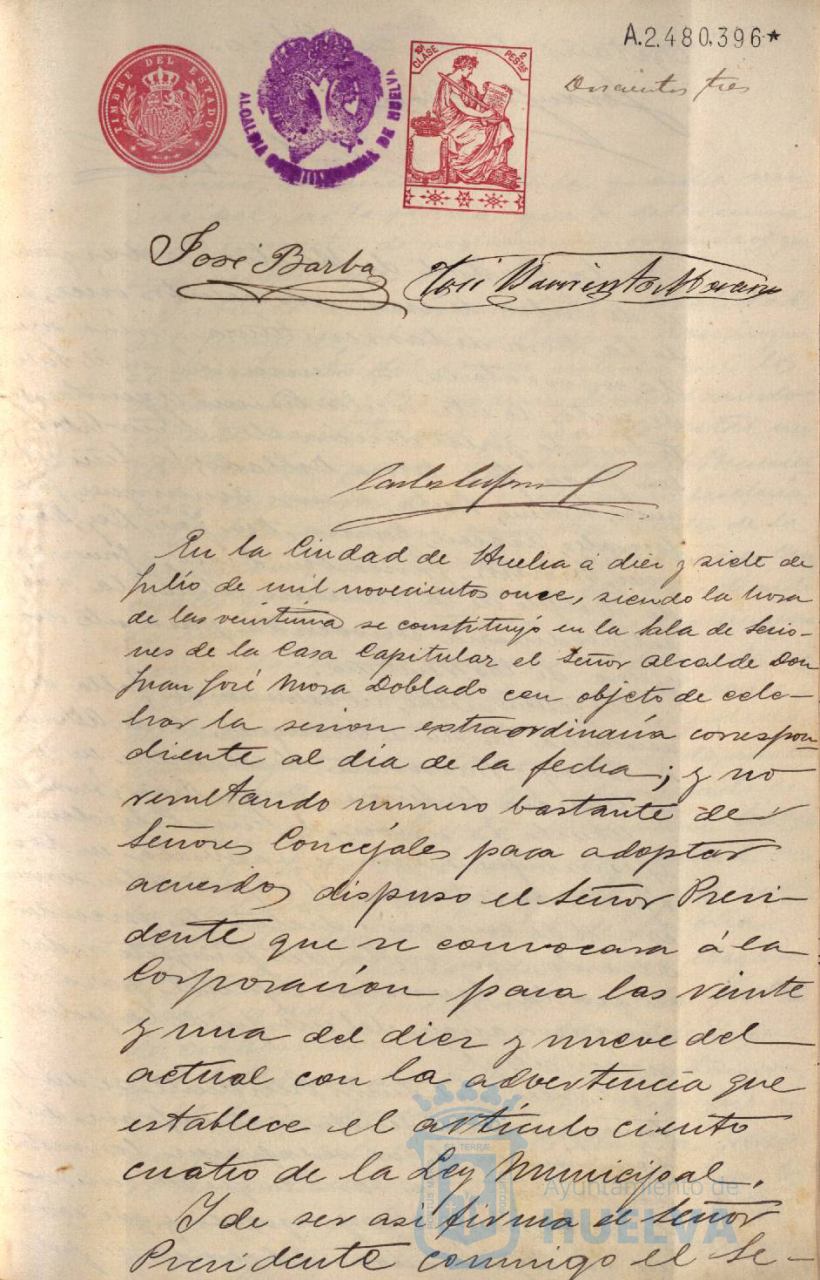 A.2.480.396*
TIMBRE DEL ESTADO
10ª CLASE 2 PESETAS
Doscientos tres
José Barba
José Barrientos Moreno
En la Ciudad de Huelva á diez y siete de
Julio de mil novecientos once, siendo la hora
de las veintiuna se constituyó en la Sala de Sesio-
nes de la Casa Capitular el Señor Alcalde Don
Juan José Mora Doblado con objeto de cele-
brar la sesion extraordinaria correspon-
diente al día de la fecha; y no
resultando numero bastante de
Señores Concejales para adoptar
acuerdos dispuso el Señor Presi-
dente que se convocara á la
Corporación para las veinte
y una del diez y nueve del
actual con la advertencia que
establece el artículo ciento
cuatro de la Ley Municipal.
Y de ser así firma el Señor
Presidente conmigo el Se-
Ayuntamiento de
HUELVA